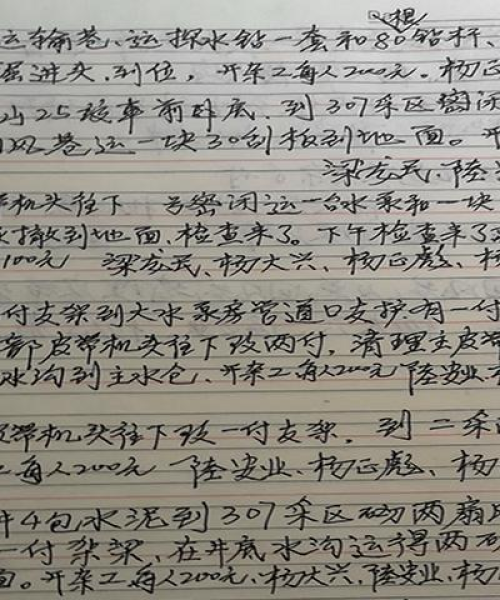 根
运输巷、运探水钻一套和80钻杆、
掘进头、到位，开杂工每人200元。杨正
25 前卧底、到307采区密闭
风巷运一块30刮板到地面。开
梁龙民、陆
机头往下 号密闭运一台水泵和一块
撤到地面、检查来了。下午检查来了
100元 梁龙民、杨大兴、杨正彪、杨
付支架到大水泵房管道口支护有一付
部皮带机头往下改两付，清理主皮带
水沟到主水仓、开杂工每人200元 陆安业、
带机头往下改一付支架. 到二采
每人200元 陆安业、杨正彪、杨
4包水泥到307采区砌两扇
一付架梁，在井底水沟运得两
。开杂工每人200元、杨大兴、陆安业、杨